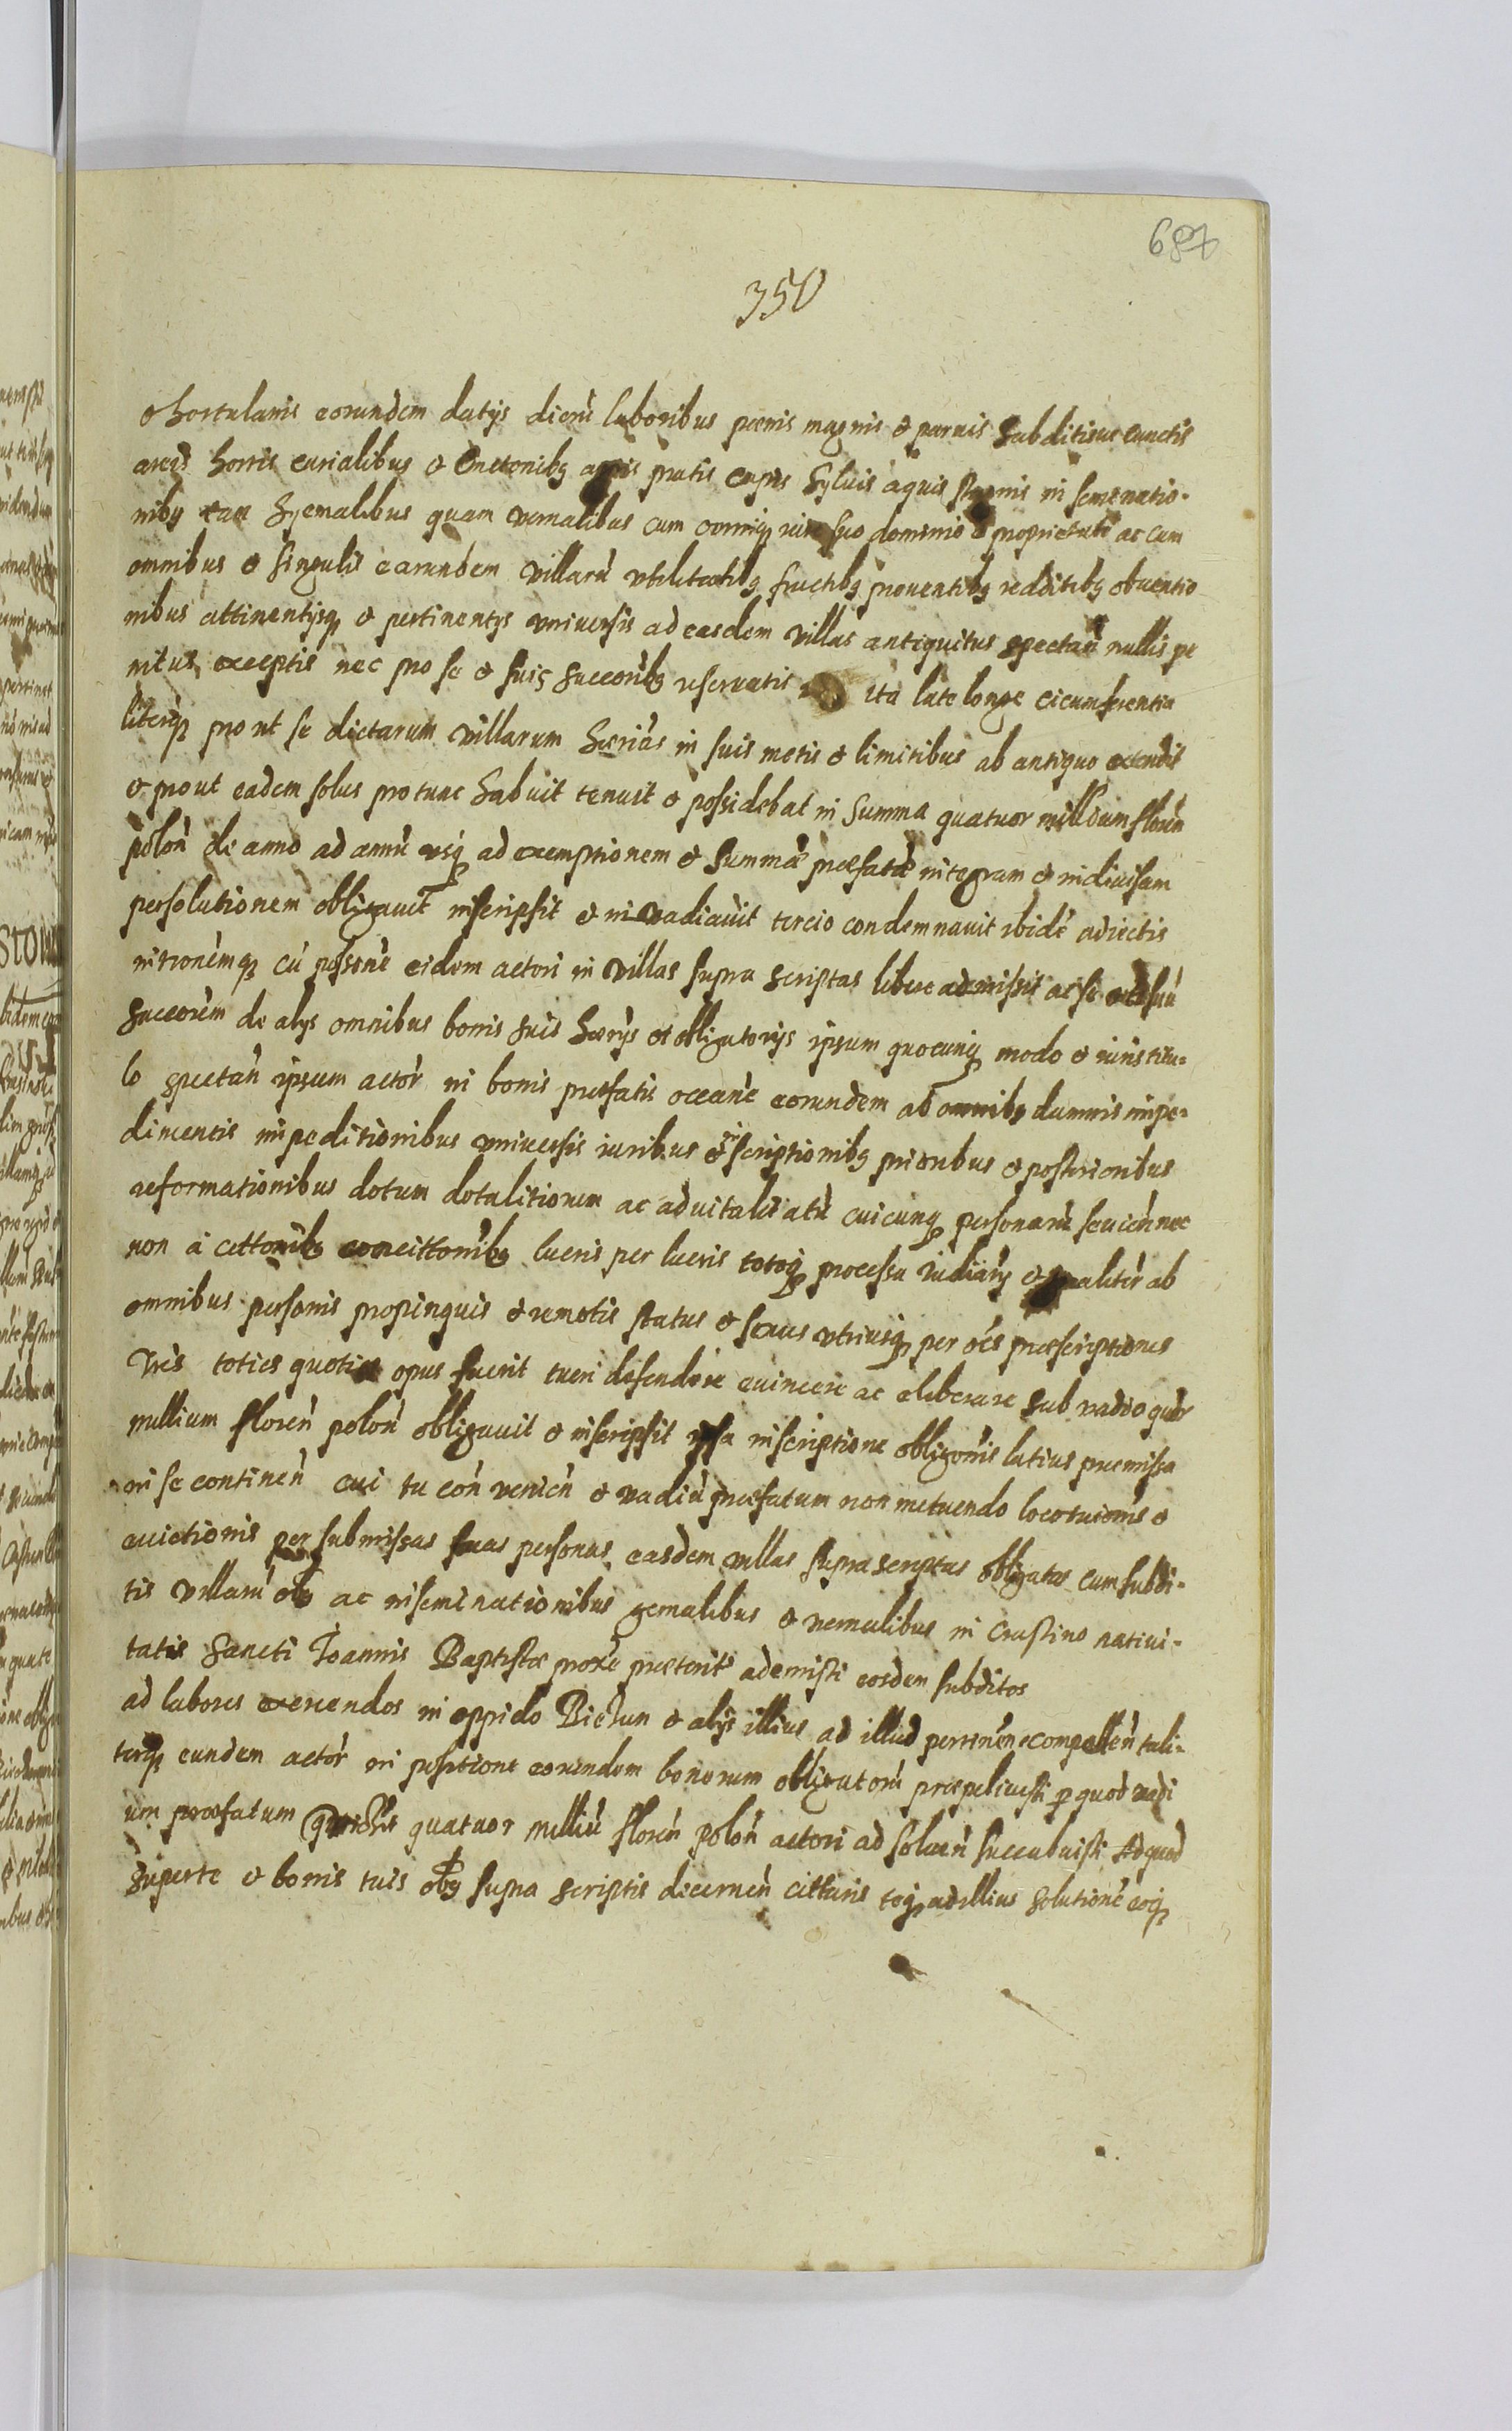 687
350
et hortulanis eorundem datijs dierũ laboribus pœnis magnis et paruis subditisue cunctis
areis hortis curialibus et Cmetonibq agris pratis campis syluis aquis stagnis in semenatio-
nibq tam hyemalibus quam vernalibus cum omniq iure suo dominio et proprietate ac cum
omnibus et singulis earundem villarũ vtilitatibq fructibq prouentibq redditibq obuentio
nibus attinentijsq et pertinentijs vniuersis ad easdem villas antiquitus spectañ nullis pe
nitus exceptis nec pro se et suis succoribq reseruatis ita late longe circumferentia
literq pro ut se dictarum villarum hæreds in suis metis et limitibus ab antiquo extendit
et prout eadem solus pro tunc habuit tenuit et possidebat in summa quatuor millium floreñ
poloñ de anno ad annũ vsq ad exemptionem et summæ præfatæ integram et indiuisam
persolutionem obligauit inscripsit et inuadiauit tercio condemnauit ibidẽ adiectis
intronẽmq cũ possonẽ eidem actori in villas supra scriptas libere admissit ac se et suũ
succorẽm de alijs omnibus bonis suis hærijs et obligatorijs ipsum quocunq modo et iuris titu-
lo spectañ ipsum actor in bonis præfatis occanẽ eorundem ab omnibq damnis impe-
dimentis impeditionibus vniuersis iuribus et inscriptionibq prioribus et posterioribus
reformationibus dotum dotalitiorum ac aduitalitatũ cuicunq personarũ seruieñ nec
non à cittonibq concittonibq lucris per lucris totoq processu iudiarij et gnaliter ab
omnibus personis propinquis et remotis status et sexus vtriusq per oẽs præscriptiones
Tr̃is toties quoties opus fuerit tueri defendere euincere ac eliberare sub vadio quor
millium floreñ poloñ obligauit et inscripsit ipsa inscriptione obligonis latius præmissa
in se contineñ cui tu coñ venieñ et vadiũ præfatum non metuendo locotuionis et
euictionis per submissas suas personas easdem villas supra scriptas obligatas cum subdi-
tis villarũ obq ac inseminationibus yemalibus et vernalibus in Crastino natiui-
tatis Sancti Ioannis Baptistæ proxẽ præteritæ ademisti eosdem subditos
ad labores exercendos in oppido Bieżun et alijs illius ad illud pertineñ compelleñ tali-
terq eundem actor in positione eorundem bonorum obligatorũ præpediuisti p quod vadi
um præfatum quatuor milliũ floreñ poloñ actori ad solueñ succubuisti Ad quod
super te et bonis tuis obq supra scriptis decerneñ cittaris teq ad illius solutionẽ eoq